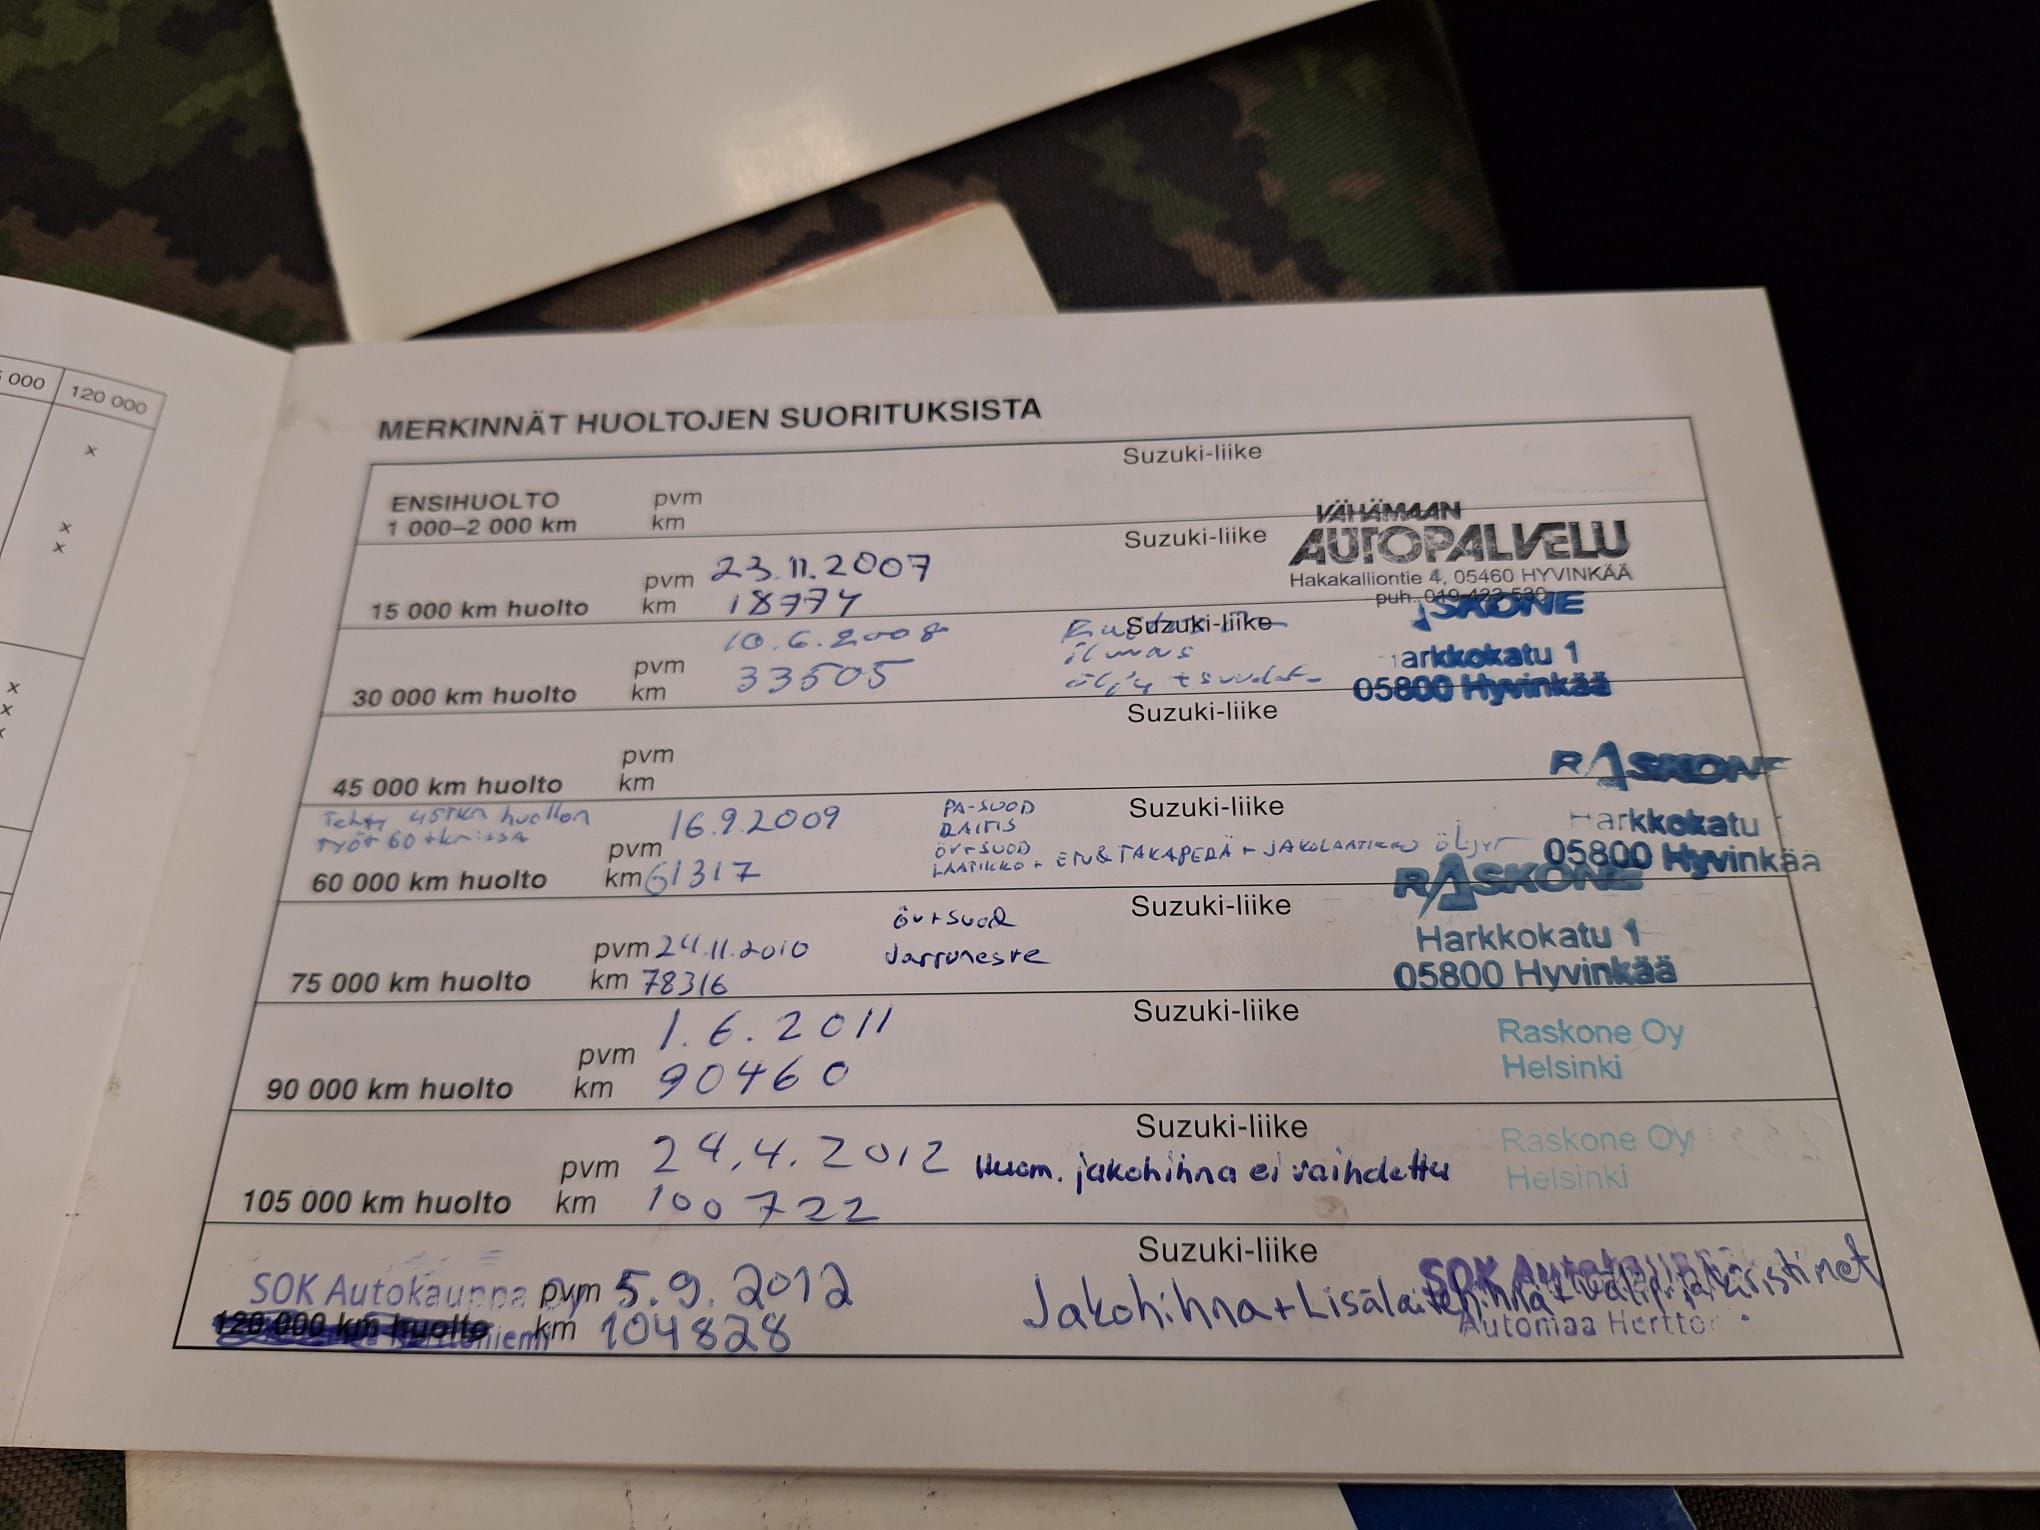 5 000 120 000
x
x
x
x
x
MERKINNÄT HUOLTOJEN SUORITUKSISTA
Suzuki-liike
ENSIHUOLTO pvm
1 000–2 000 km km
VÄHÄMAAN
AUTOPALVELU
Hakakalliontie 4, 05460 HYVINKÄÄ
puh. 019-423 530
Suzuki-liike
pvm 23.11.2007
15 000 km huolto km 18774
Suzuki-liike
SKONE
arkkokatu 1
05800 Hyvinkää
pvm 10.6.2008
ilmas
öljy + suodat
30 000 km huolto km 33505
Suzuki-liike
pvm
45 000 km huolto km
RASKONE
Harkkokatu
05800 Hyvinkää
Suzuki-liike
Tehty 45TKM huollon
työt 60tkm:ssa
pvm 16.9.2009
PA-SUOD
RAITIS
ÖV+SUOD
LAATIKKO + ETU & TAKAPERÄ + JAKOLAATIKKO öljyt
60 000 km huolto km 61317
Suzuki-liike
RASKONE
Harkkokatu 1
05800 Hyvinkää
öv+suod
Jarruneste
pvm 24.11.2010
75 000 km huolto km 78316
Suzuki-liike
Raskone Oy
Helsinki
pvm 1.6.2011
90 000 km huolto km 90460
Suzuki-liike
Raskone Oy
Helsinki
pvm 24.4.2012 Huom. jakohihna ei vaihdettu
105 000 km huolto km 100722
Suzuki-liike
SOK Autokauppa Oy pvm 5.9.2012
SOK Autokauppa
Jakohihna + Lisälaitehihna + välip. ja kiristimet
Automaa Hertto
120 000 km huolto km 104828